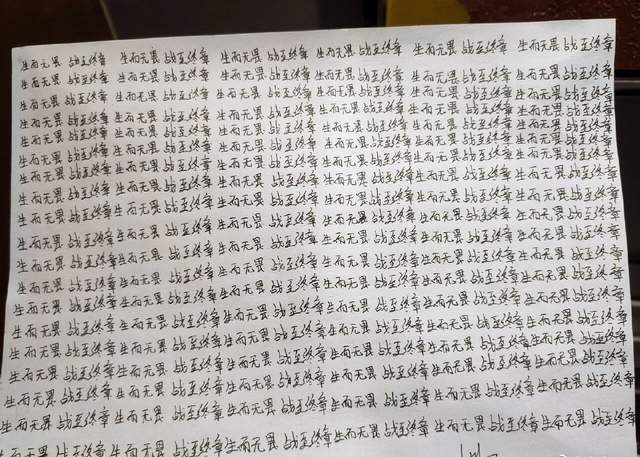 生而无畏 战至终章 生而无畏 战至终章 生而无畏 战至终章 生而无畏 战至终章 生而无畏 战至终章 生而无畏 战至终章
生而无畏 战至终章 生而无畏 战至终章 生而无畏 战至终章 生而无畏 战至终章 生而无畏 战至终章 生而无畏 战至终章
生而无畏 战至终章 生而无畏 战至终章 生而无畏 战至终章 生而无畏 战至终章 生而无畏 战至终章 生而无畏 战至终章
生而无畏 战至终章 生而无畏 战至终章 生而无畏 战至终章 生而无畏 战至终章 生而无畏 战至终章 生而无畏 战至终章
生而无畏 战至终章 生而无畏 战至终章 生而无畏 战至终章 生而无畏 战至终章 生而无畏 战至终章 生而无畏 战至终章
生而无畏 战至终章 生而无畏 战至终章 生而无畏 战至终章 生而无畏 战至终章 生而无畏 战至终章 生而无畏 战至终章
生而无畏 战至终章 生而无畏 战至终章 生而无畏 战至终章 生而无畏 战至终章 生而无畏 战至终章 生而无畏 战至终章
生而无畏 战至终章 生而无畏 战至终章 生而无畏 战至终章 生而无畏 战至终章 生而无畏 战至终章 生而无畏 战至终章
生而无畏 战至终章 生而无畏 战至终章 生而无畏 战至终章 生而无畏 战至终章 生而无畏 战至终章 生而无畏 战至终章
生而无畏 战至终章 生而无畏 战至终章 生而无畏 战至终章 生而无畏 战至终章 生而无畏 战至终章 生而无畏 战至终章
生而无畏 战至终章 生而无畏 战至终章 生而无畏 战至终章 生而无畏 战至终章 生而无畏 战至终章 生而无畏 战至终章
生而无畏 战至终章 生而无畏 战至终章 生而无畏 战至终章 生而无畏 战至终章 生而无畏 战至终章 生而无畏 战至终章
生而无畏 战至终章 生而无畏 战至终章 生而无畏 战至终章 生而无畏 战至终章 生而无畏 战至终章 生而无畏 战至终章
生而无畏 战至终章 生而无畏 战至终章 生而无畏 战至终章 生而无畏 战至终章 生而无畏 战至终章 生而无畏 战至终章
生而无畏 战至终章 生而无畏 战至终章 生而无畏 战至终章 生而无畏 战至终章 生而无畏 战至终章 生而无畏 战至终章
生而无畏 战至终章 生而无畏 战至终章 生而无畏 战至终章 生而无畏 战至终章 生而无畏 战至终章 生而无畏 战至终章
生而无畏 战至终章 生而无畏 战至终章 生而无畏 战至终章 生而无畏 战至终章 生而无畏 战至终章 生而无畏 战至终章
生而无畏 战至终章 生而无畏 战至终章 生而无畏 战至终章 生而无畏 战至终章 生而无畏 战至终章 生而无畏 战至终章
而无畏 战至终章 生而无畏 战至终章 生而无畏 战至终章 生而无畏 战至终章 生而无畏 战至终章 生而无畏 战至终章